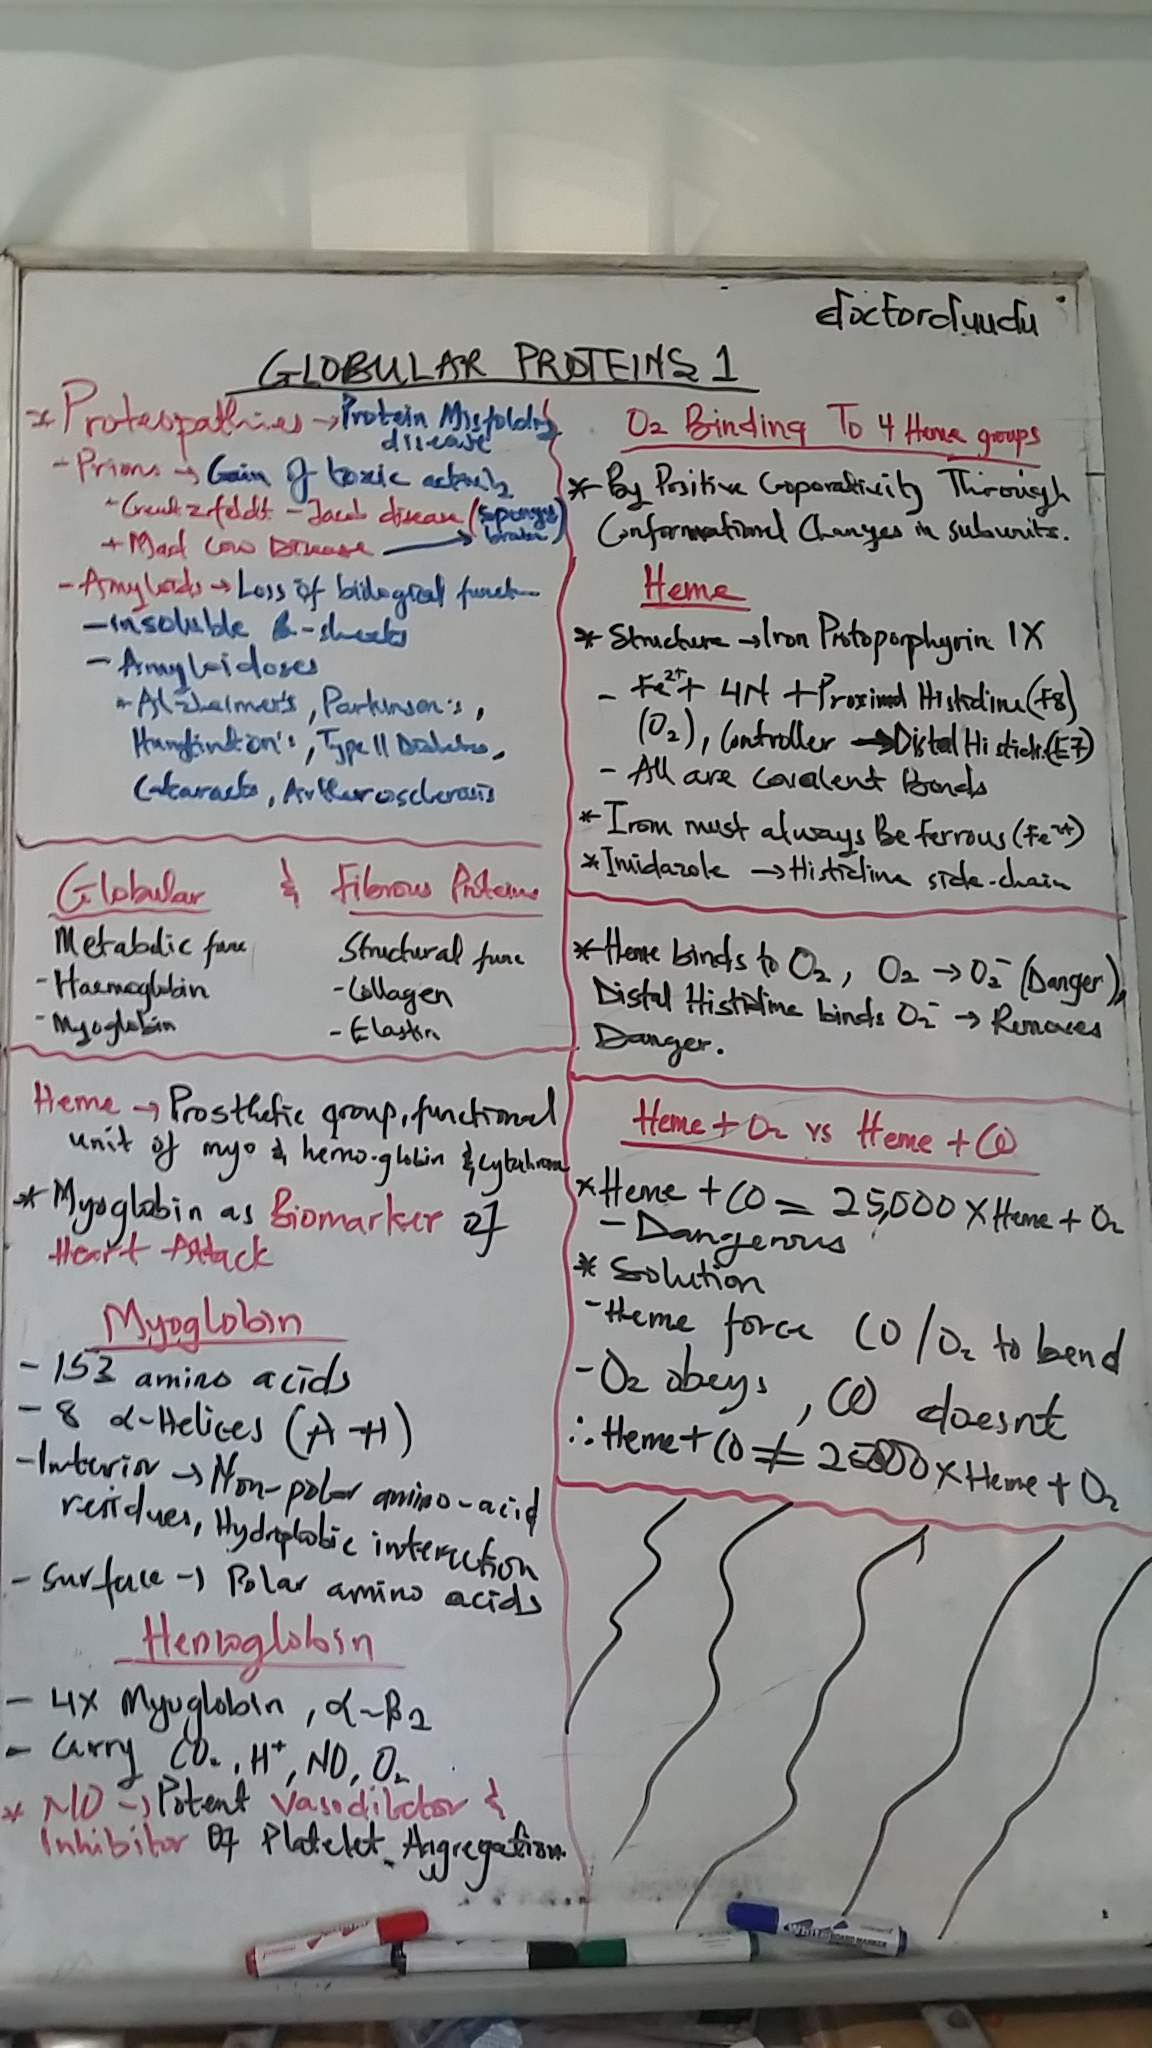 doctordudu
GLOBULAR PROTEINS 1
* Proteopathies → Protein Misfolding
disease
- Prions → Gain of toxic activity
+ Mad Cow Disease → (spongy
brain)
- Amyloids → Loss of biological funct-
- insoluble B-sheets
- Amyloidoses
+ Alzheimers, Parkinson's,
Huntington's, Type II Diabetes,
Cataracts, Artherosclerosis
Globular & Fibrous Proteins
Metabolic func Structural func
- Haemoglobin - Collagen
- Myoglobin - Elastin
Heme → Prosthetic group, functional
unit of myo & hemo-globin & cytochrome
* Myoglobin as Biomarker of
Heart Attack
Myoglobin
- 153 amino acids
- 8 α-Helices (A-H)
- Interior → Non-polar amino-acid
residues, Hydrophobic interaction
- Surface → Polar amino acids
Hemoglobin
- 4x Myoglobin, α-β2
- Carry CO2, H+, NO, O2
* NO → Potent Vasodilator &
inhibitor of Platelet Aggregation.
O2 Binding To 4 Heme groups
* By Positive Cooperativity Through
Conformational Changes in subunits.
Heme
* Structure → Iron Protoporphyrin IX
- Fe2+ + 4N + Proximal Histidine (F8)
(O2), Controller → Distal (E7)
- All are covalent Bonds
* Iron must always Be ferrous (Fe2+)
* Imidazole → Histidine side-chain
* Heme binds to O2, O2 → O2- (Danger),
Distal Histidine binds O2- → Removes
Danger.
Heme + O2 vs Heme + CO
* Heme + CO = 25,000 x Heme + O2
- Dangerous
* Solution
- Heme force CO/O2 to bend
- O2 obeys, CO doesnt
∴ Heme + CO ≠ 25000 x Heme + O2